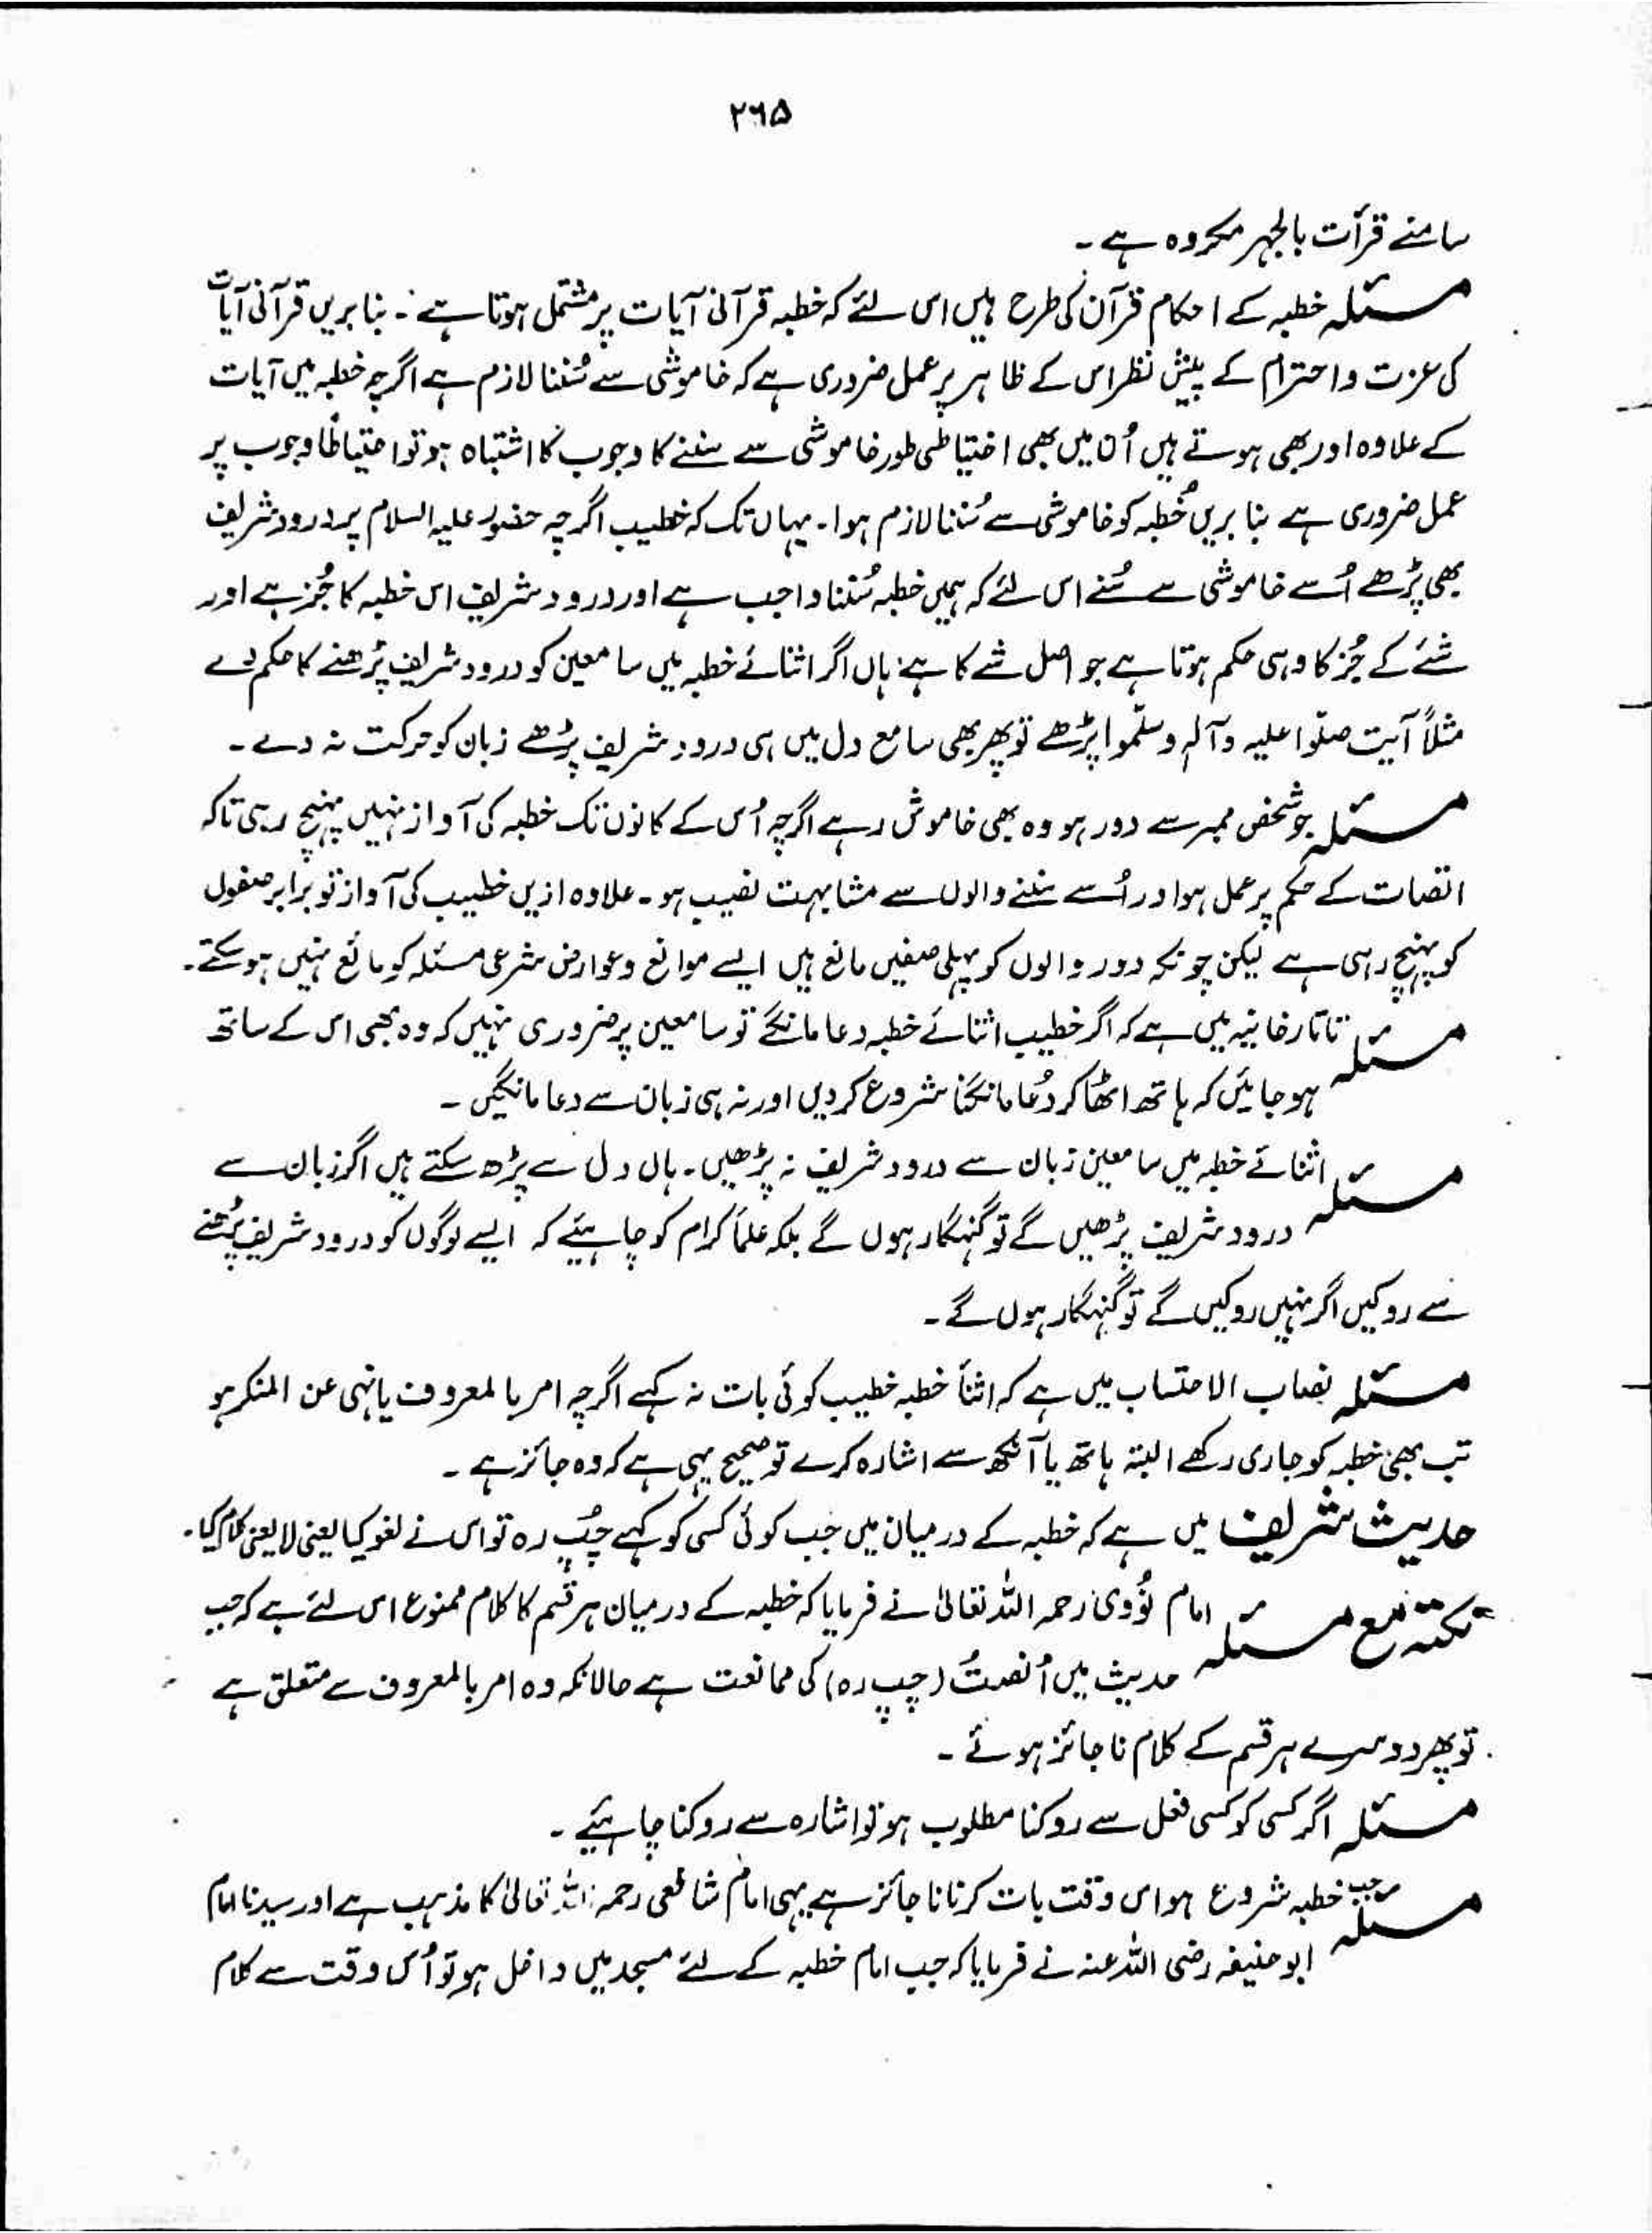 ۲۶۵
سامنے قرأت بالجہر مکروہ ہے ۔
مسئلہ خطبہ کے احکام قرآن کی طرح ہیں اس لئے کہ خطبہ قرآنی آیات پر مشتمل ہوتا ہے ۔ بنا بریں قرآنی آیات
کی عزت و احترام کے پیش نظر اس کے ظاہر پر عمل ضروری ہے کہ خاموشی سے سُننا لازم ہے اگرچہ خطبہ میں آیات
کے علاوہ اور بھی ہوتے ہیں اُن میں بھی اختیاطی طور خاموشی سے سننے کا وجوب کا اشتباہ ہو تو احتیاطًا وجوب پر
عمل ضروری ہے بنا بریں خُطبہ کو خاموشی سے سُننا لازم ہوا ۔ یہاں تک کہ خطیب اگرچہ حضور علیہ السلام پر درود شریف
بھی پڑھے اُسے خاموشی سے سُنے اس لئے کہ ہمیں خطبہ سُننا واجب ہے اور درود شریف اس خطبہ کا جُز ہے اور
شئے کے جُز کا وہی حکم ہوتا ہے جو اصل شے کا ہے ہاں اگر اثنائے خطبہ میں سامعین کو درود شریف پڑھنے کا حکم دے
مثلاً آیت صلّوا علیہ وآلہٖ وسلّموا پڑھے تو پھر بھی سامع دل میں ہی درود شریف پڑھے زبان کو حرکت نہ دے ۔
مسئلہ جو شخص ممبر سے دور ہو وہ بھی خاموش رہے اگرچہ اُس کے کانوں تک خطبہ کی آواز نہیں پہنچ رہی تاکہ
انصات کے حکم پر عمل ہو اور اُسے سننے والوں سے مشابہت نصیب ہو ۔ علاوہ ازیں خطیب کی آواز تو برابر صفوں
کو پہنچ رہی ہے لیکن چونکہ دور والوں کو پہلی صفیں مانع ہیں ایسے موانع و عوارض شرعی مسئلہ کو مانع نہیں ہو سکتے ۔
مسئلہ تاتارخانیہ میں ہے کہ اگر خطیب اثنائے خطبہ دعا مانگے تو سامعین پر ضروری نہیں کہ وہ بھی اس کے ساتھ
ہو جائیں کہ ہاتھ اٹھا کر دُعا مانگنا شروع کر دیں اور نہ ہی زبان سے دعا مانگیں ۔
مسئلہ اثنائے خطبہ میں سامعین زبان سے درود شریف نہ پڑھیں ۔ ہاں دل سے پڑھ سکتے ہیں اگر زبان سے
درود شریف پڑھیں گے تو گنہگار ہوں گے بلکہ علمأ کرام کو چاہیئے کہ ایسے لوگوں کو درود شریف پڑھنے
سے روکیں اگر نہیں روکیں گے تو گنہگار ہوں گے ۔
مسئلہ نصاب الاحتساب میں ہے کہ اثنأ خطبہ خطیب کوئی بات نہ کہے اگرچہ امر بالمعروف یا نہی عن المنکر ہو
تب بھی خطبہ کو جاری رکھے البتہ ہاتھ یا آنکھ سے اشارہ کرے تو صحیح یہی ہے کہ وہ جائز ہے ۔
حدیث شریف میں ہے کہ خطبہ کے درمیان میں جب کوئی کسی کو کہے چُپ رہ تو اس نے لغو کیا یعنی لایعنی کلام کیا ۔
نکتہ مع مسئلہ امام نوُوی رحمہ اللہ تعالیٰ نے فرمایا کہ خطبہ کے درمیان ہر قسم کا کلام ممنوع اس لئے ہے کہ جب
حدیث میں اُنصتُ (چپ رہ) کی ممانعت ہے حالانکہ وہ امر بالمعروف سے متعلق ہے
تو پھر دوسرے ہر قسم کے کلام ناجائز ہوئے ۔
مسئلہ اگر کسی کو کسی فعل سے روکنا مطلوب ہو تو اشارہ سے روکنا چاہیئے ۔
مسئلہ جب خطبہ شروع ہو اس وقت بات کرنا ناجائز ہے یہی امام شافعی رحمہ اللہ تعالیٰ کا مذہب ہے اور سیدنا امام
ابو حنیفہ رضی اللہ عنہ نے فرمایا کہ جب امام خطبہ کے لئے مسجد میں داخل ہو تو اُس وقت سے کلام